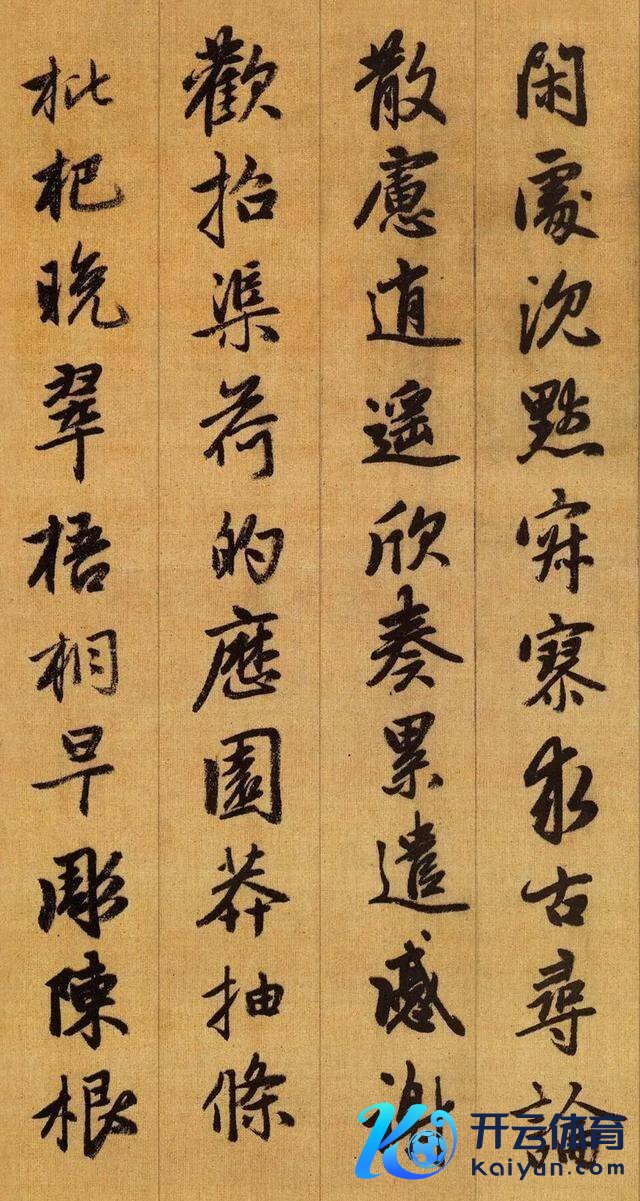 閑處沈默寂寥求古尋論
散慮逍遥欣奏累遣慼謝
歡招渠荷的歷園莽抽條
枇杷晚翠梧桐早彫陳根
开云体育
kaiyun.com